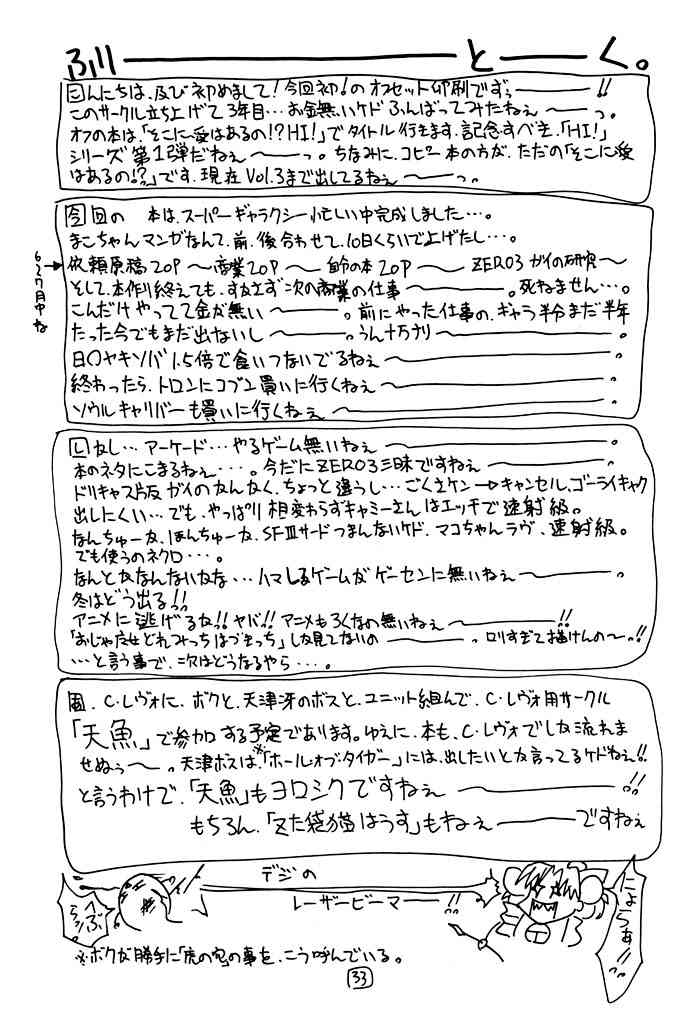 ふりーーーとーーく。
こんにちは、及び初めまして!今回初!のオフセット印刷ですぅ〜〜!!
このサークル立ち上げて3年目…お金無いケドふんばってみたねぇ〜〜っ。
オフの本は、「そこに愛はあるの!?HI!」でタイトル行きます、記念すべき、「HI!」
シリーズ第1弾だねぇ〜〜っ。ちなみに、コピー本の方が、ただの「そこに愛
はあるの!?」です、現在Vol.3まで出してるねぇ〜〜っ。
今回の 本は、スーパーギャラクシー忙しい中完成しました…。
まこちゃんマンガなんて、前、後合わせて、10日くらいで上げたし…。
6と7月中ね
依頼原稿20P〜商業20P〜自分の本20P〜ZERO3ガイの研究〜
そして、本作り終えても、すぐ次の商業の仕事〜。死ねません…。
こんだけやってて金が無い〜。前にやった仕事の、ギャラ半分まだ半年
たった今でもまだ出ないし〜。うん十万チリ〜。
日〇ヤキソバ1.5倍で食いつないでるねぇ〜。
終わったら、トロンにコブン買いに行くねぇ〜。
ソウルキャリバーも買いに行くねぇ〜。
しかし…アーケード…やるゲーム無いねぇ〜。
本のネタにこまるねぇ…。今だにZERO3三昧ですねぇ〜。
ドリキャス版ガイのなんかく、ちょっと違うし…ごくさケン→キャンセル、ゴーライキャク
出しにくい…でも、やっぱり相変わらずキャミーさんはエッチで速射級。
なんちゅーか、ほんちゅーか、SFⅢサードつまんないケド、マコちゃんラヴ、速射級。
でも使うのネクロ…。
なんとかなんないかな…ハマしるゲームがゲーセンに無いねぇ〜。
冬はどう出る!!
アニメに逃げるか!!ヤバ!!アニメもろくなの無いねぇ〜!!
「おじゃ魔女どれみっちはづきっち」しか見てないの〜。ロリすぎて描けんの〜!!
…と言う事で、次はどうなるやら…。
C・レヴォに、ボクと、天津冴のボスと、ユニット組んで、C・レヴォ用サークル
「天魚」で参加する予定であります。ゆえに、本も、C・レヴォでしか流れま
せぬぅ〜。天津ボスは、※「ホールオブタイガー」には、出したいとか言ってるケドねぇ!!
と言うわけで、「天魚」もヨロシクですねぇ〜!!
もちろん、「ズた袋猫はうす」もねぇ〜ですねぇ
デジの
レーザービーマー!!
へぶらっ!!
にょらぁ!!
※ボクが勝手に「虎の穴」の事を、こう呼んでいる。
33